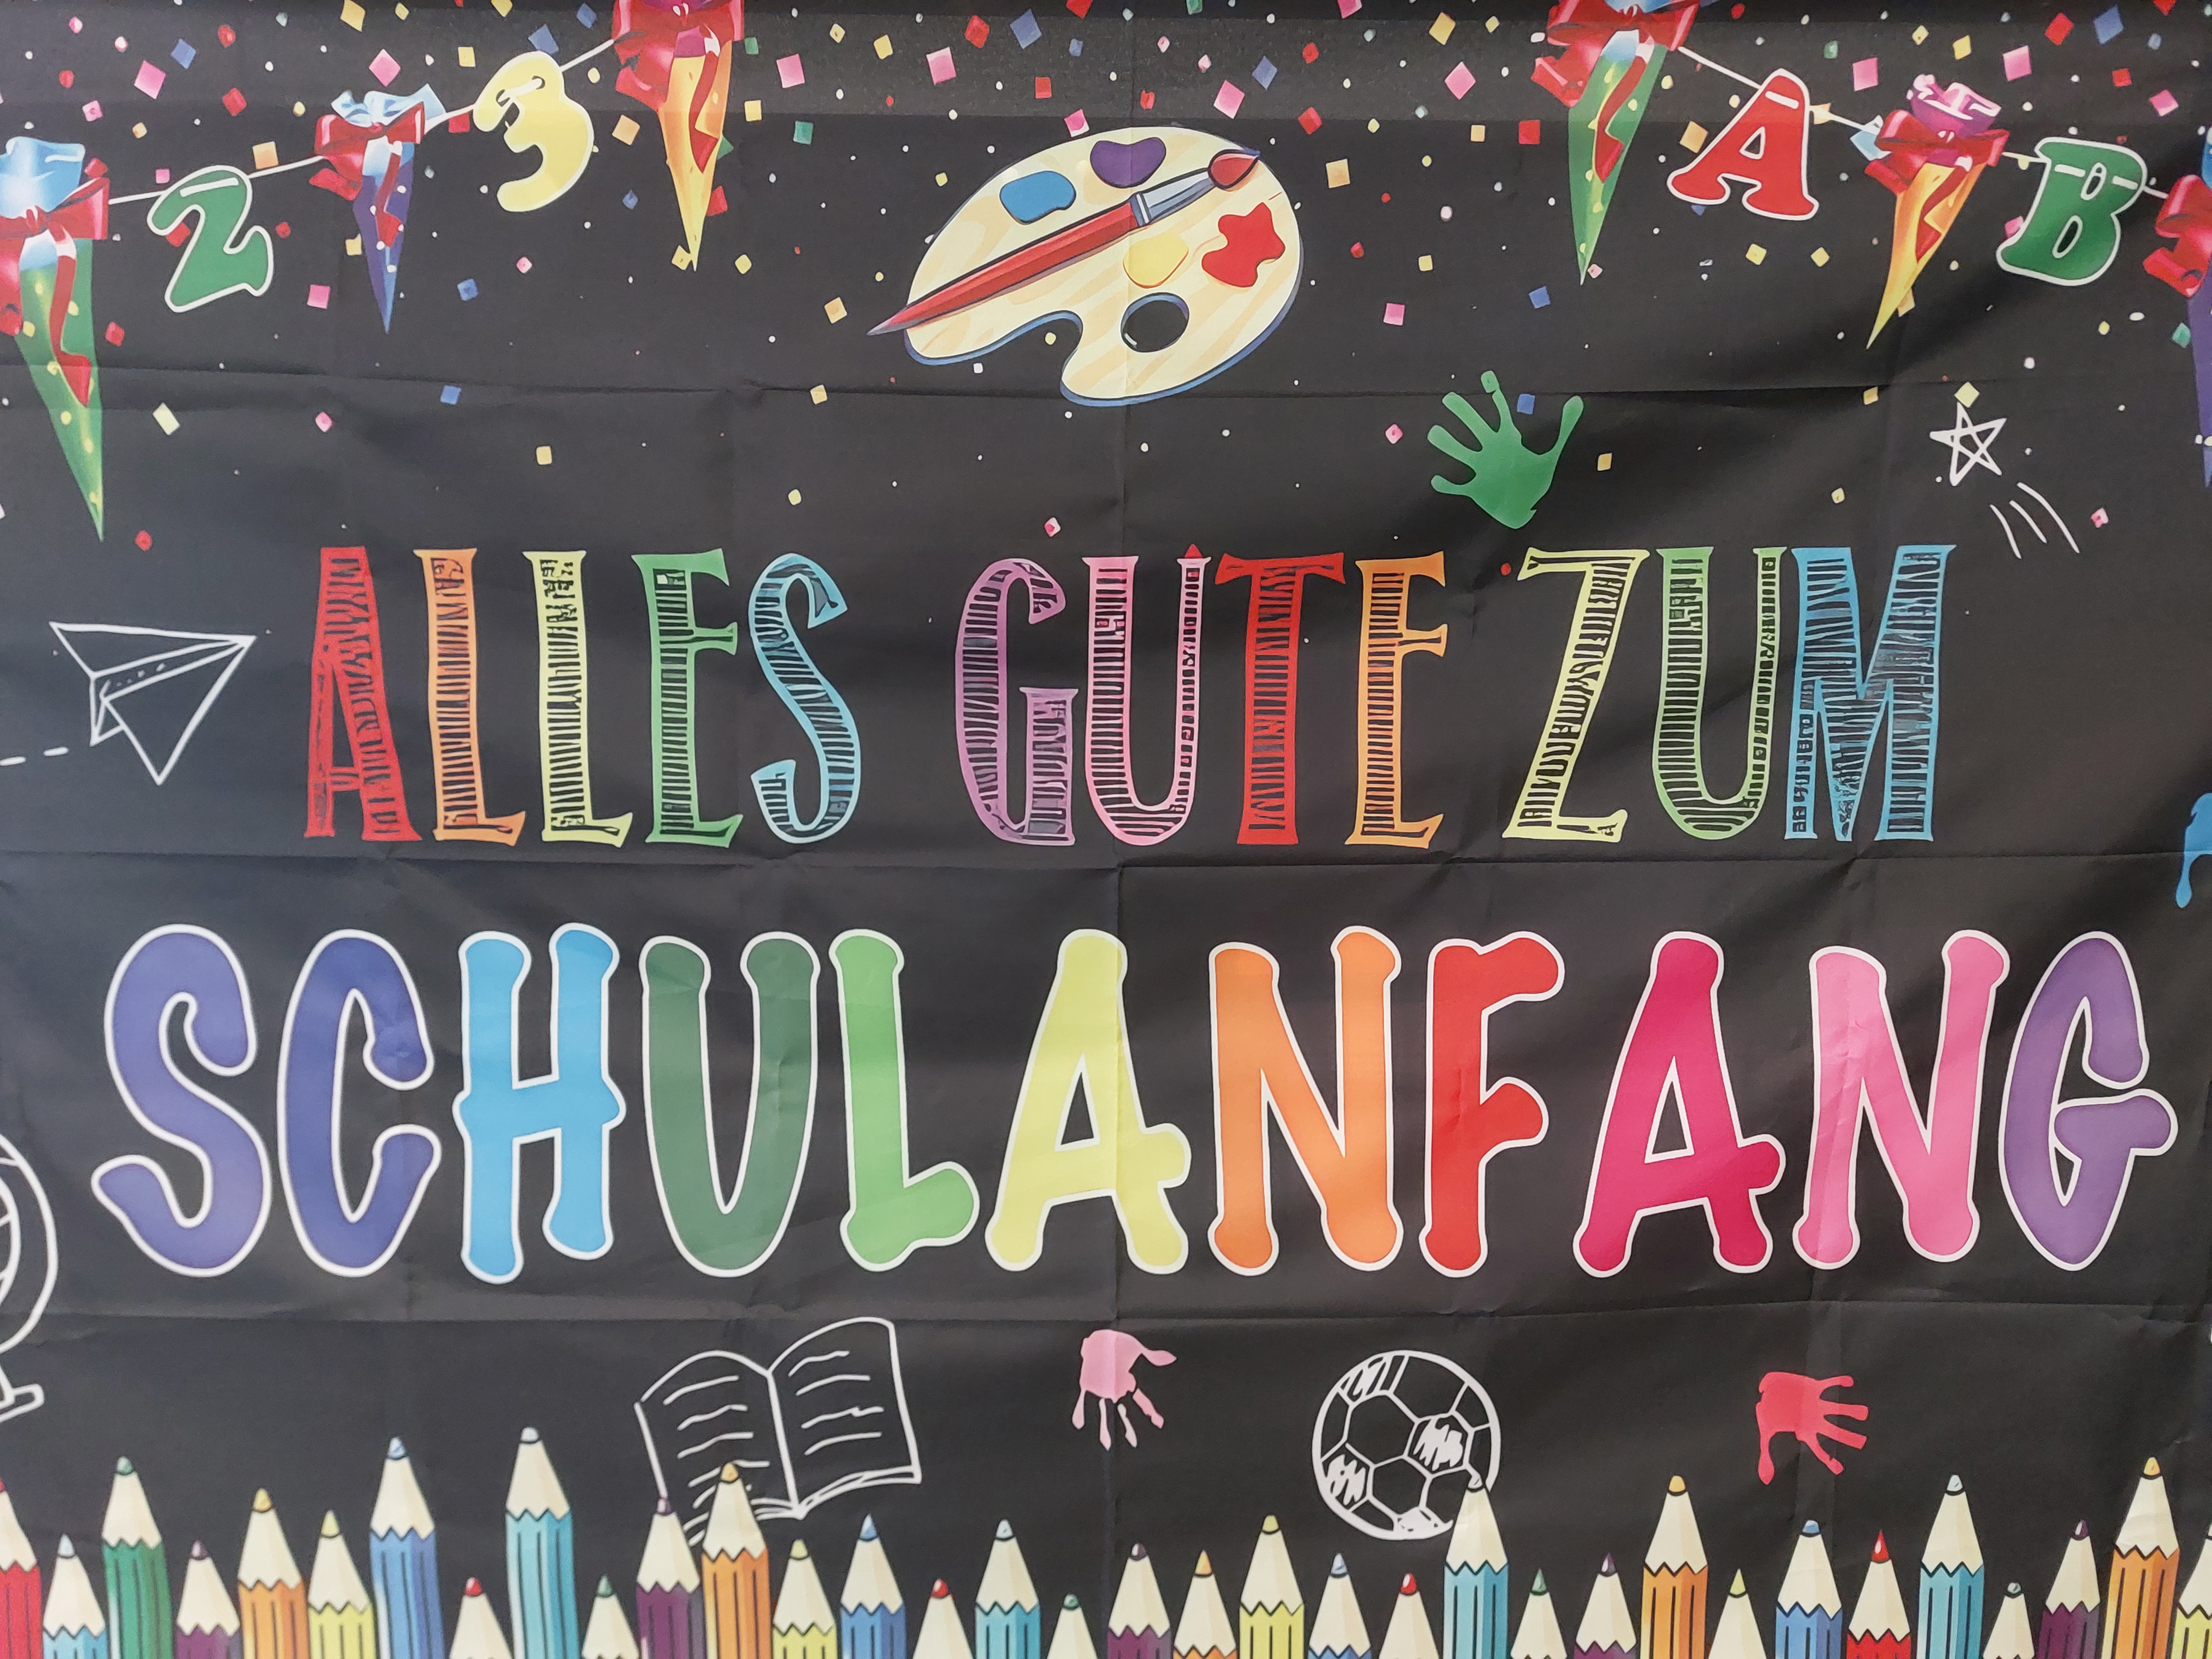 2 3 A B
ALLES GUTE ZUM
SCHULANFANG